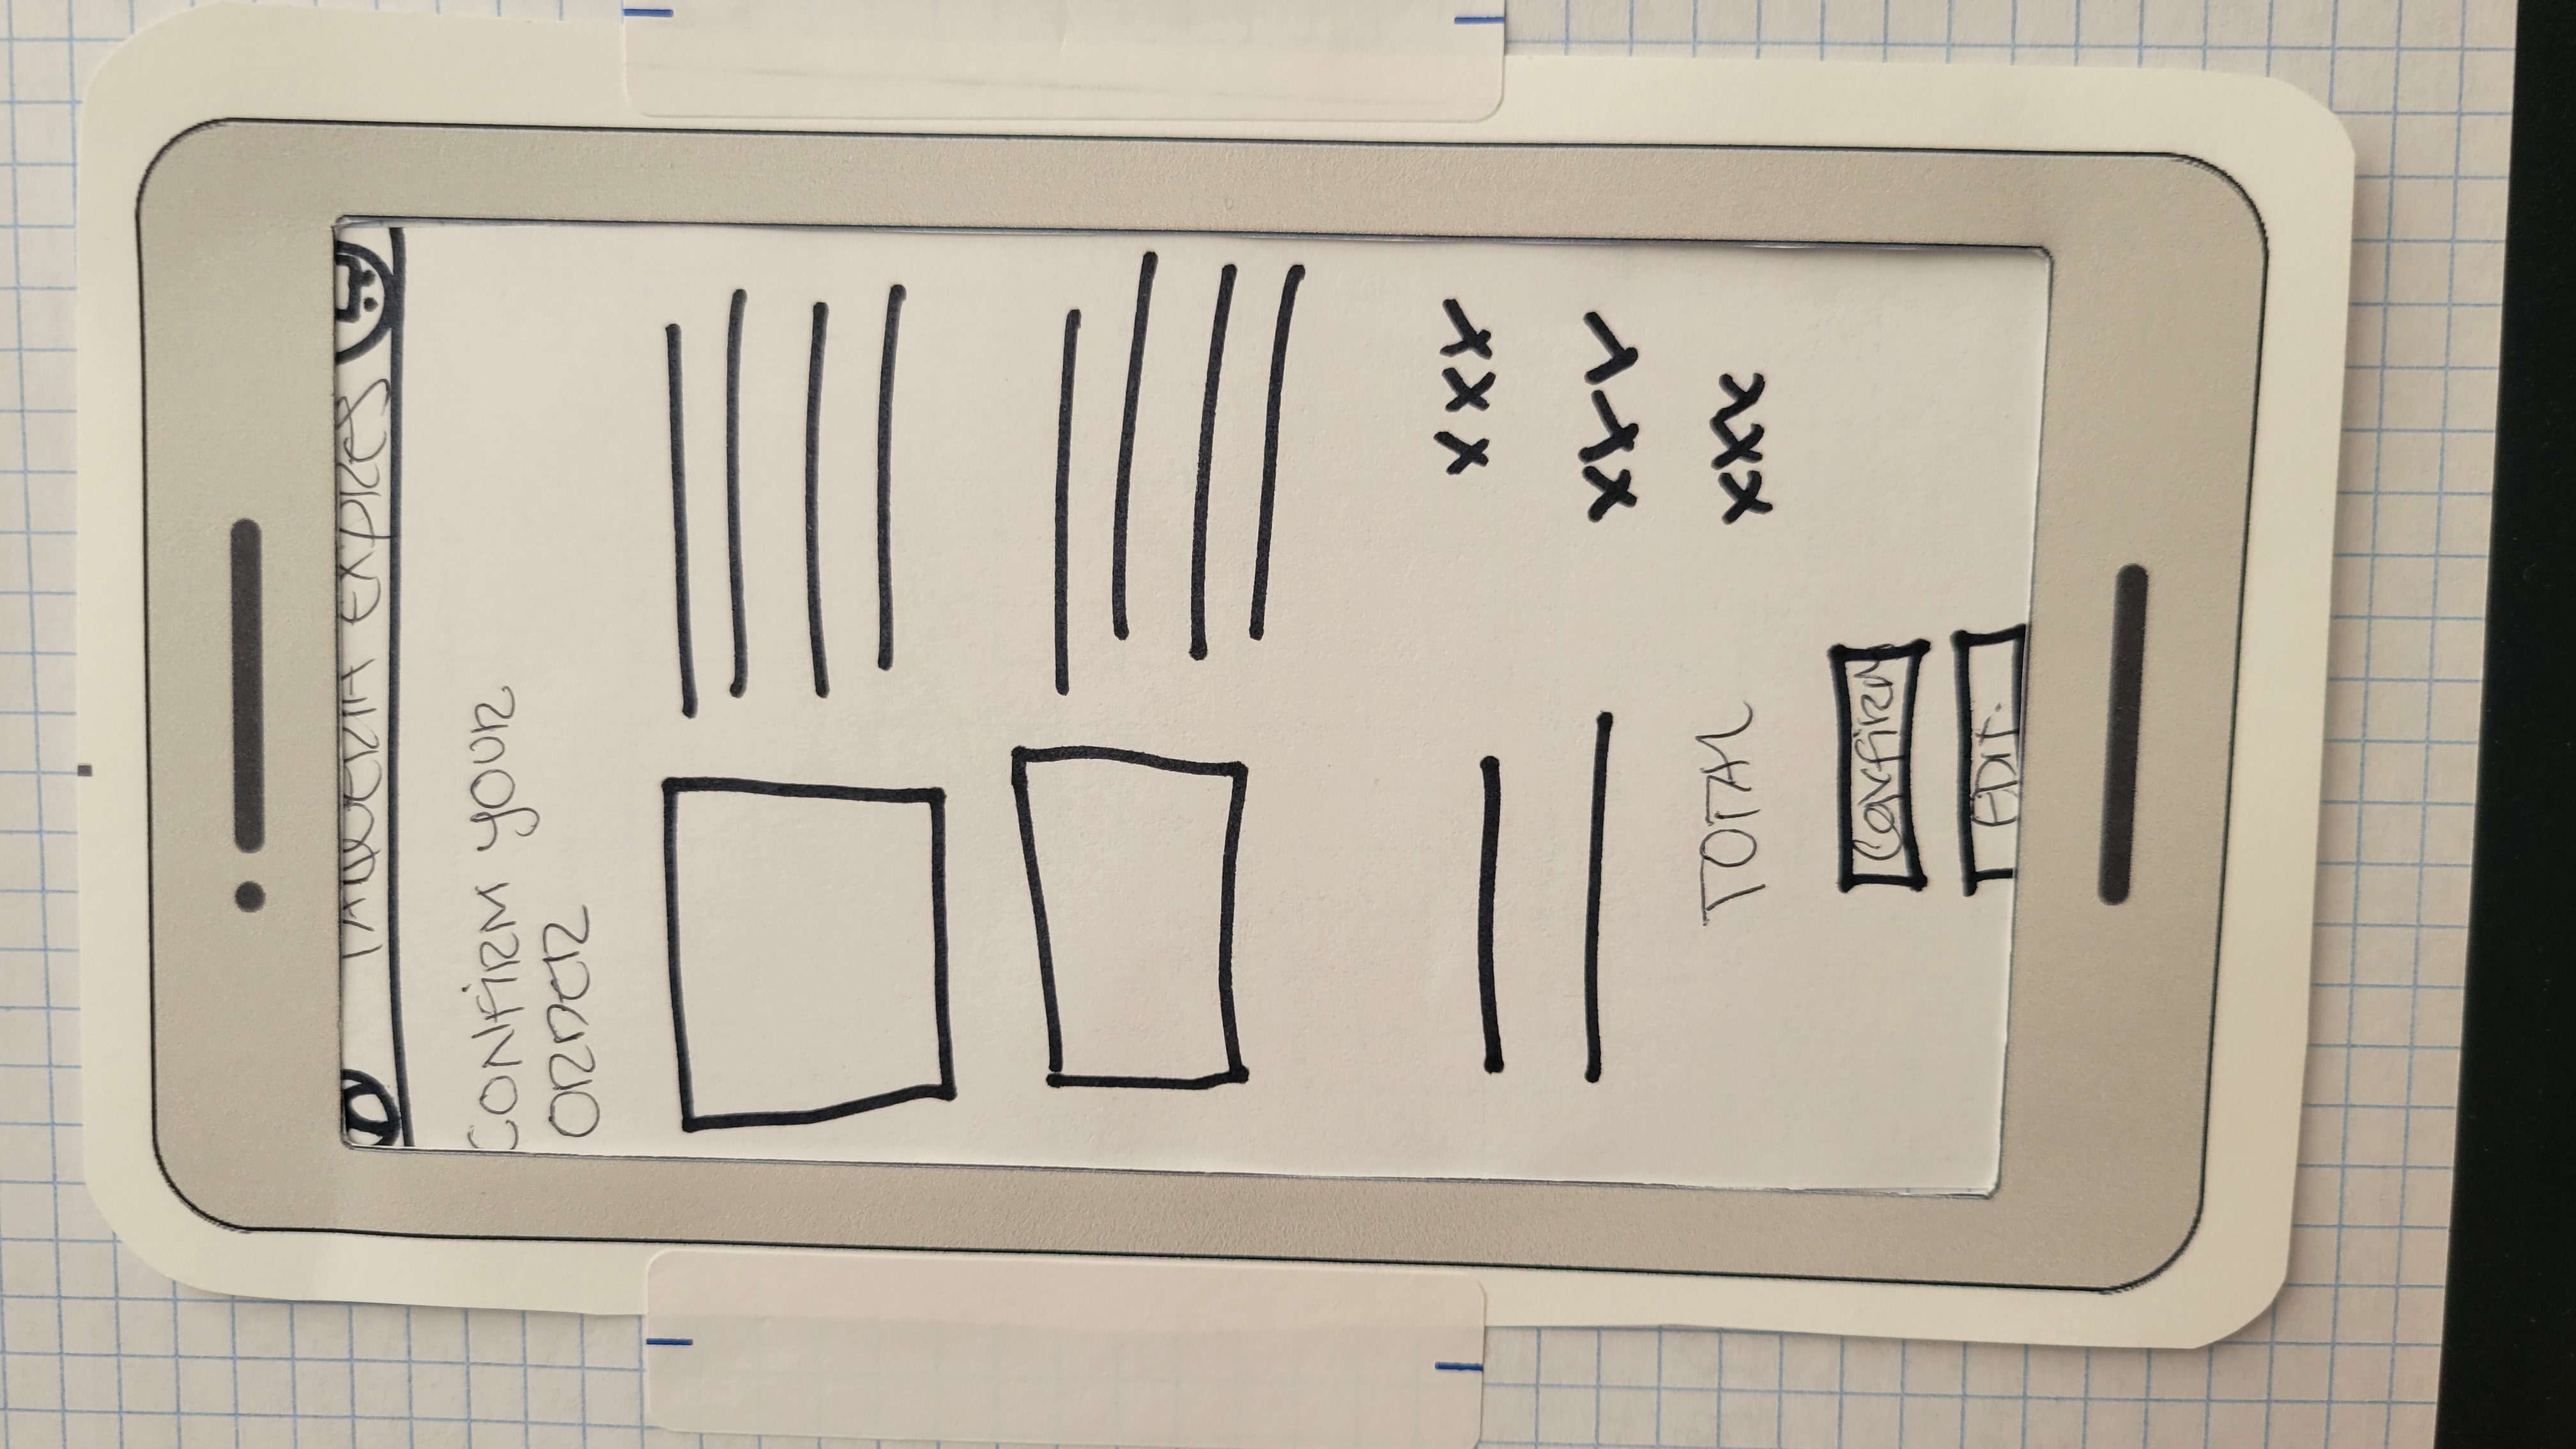 TAQUERIA EXPRES
CONFIRM YOUR
ORDER
XXX
XXX
TOTAL XXX
Confirm
EDIT